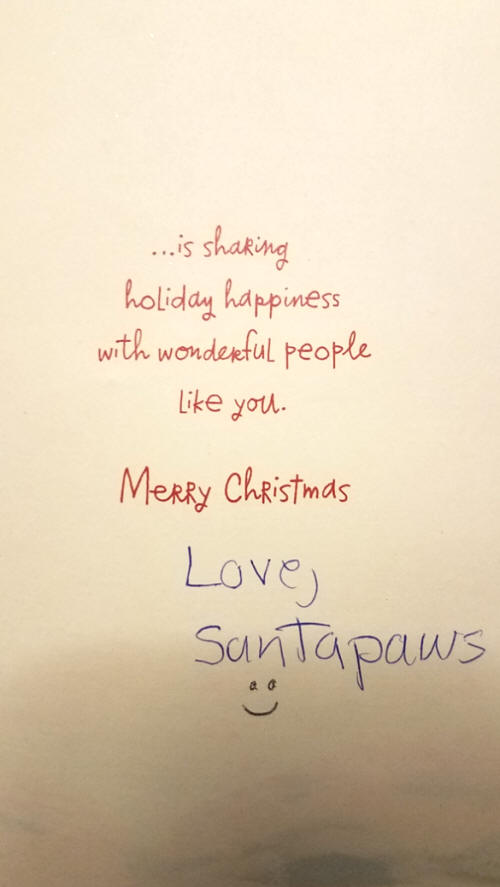 ...is sharing
holiday happiness
with wonderful people
like you.
Merry Christmas
Love,
Santapaws